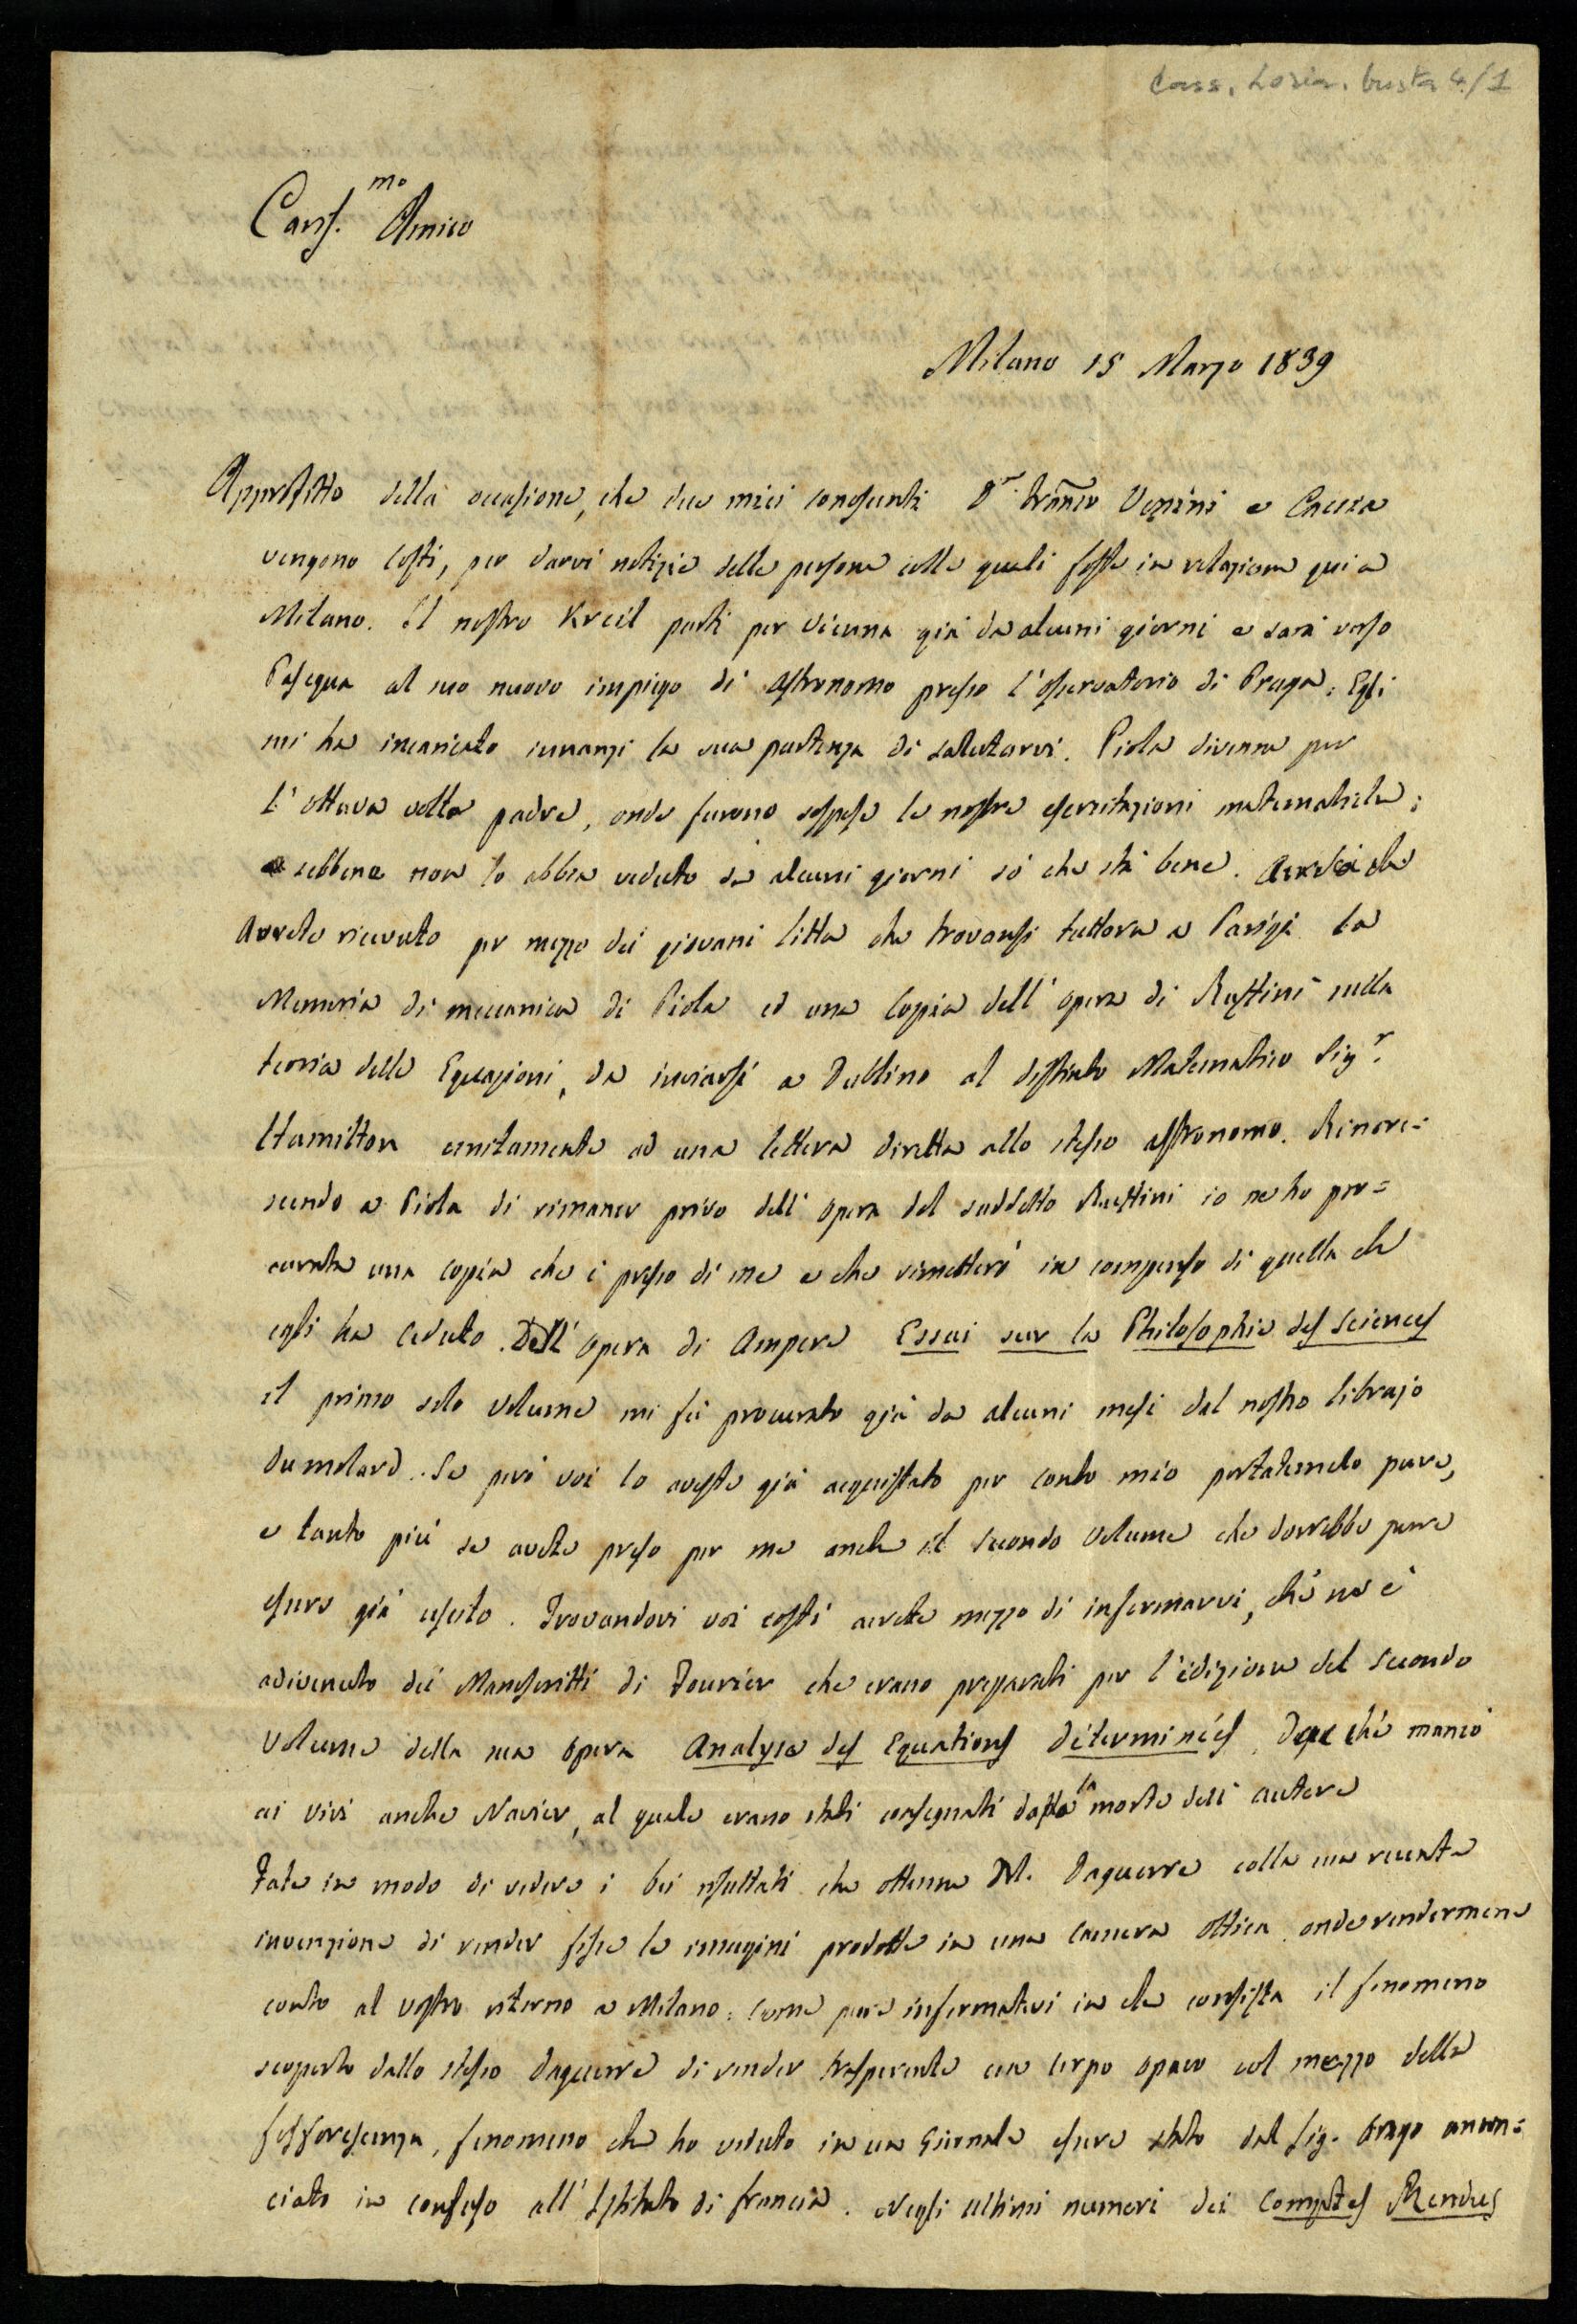 Cass. Loria. busta 4/1
Cariss.mo Amico
Milano 15 Marzo 1839
Approfitto della occasione, che due miei conoscenti Dr. Franco Venini e Caccia
vengono costì, per darvi notizie delle persone colle quali foste in relazione qui a
Milano. Il nostro Kreil partì per Vienna già da alcuni giorni e sarà verso
Pasqua al suo nuovo impiego di astronomo presso l'osservatorio di Praga: Egli
mi ha incaricato innanzi la sua partenza di salutarvi. Piola divenne per
l'ottava volta padre, onde furono sospese le nostre esercitazioni matematiche;
e sebbene non lo abbia veduto da alcuni giorni sò che stà bene.
Avrete ricevuto per mezzo dei giovani Litta che trovansi tuttora a Parigi la
Memoria di meccanica di Piola ed una copia dell'opera di Ruffini sulla
teoria delle Equazioni, da inviarsi a Dublino al distinto Matematico Sigr.
Hamilton unitamente ad una lettera diretta allo stesso astronomo. Rincre-
scendo a Piola di rimaner privo dell'opera del suddetto Ruffini io ne ho pro=
curata una copia che è presso di me e che rimetterò in compenso di quella che
egli ha ceduto. Dell'opera di Ampere Essai sur la Philosophie des Sciences
il primo solo volume mi fù procurato già da alcuni mesi dal nostro librajo
Dumolard. Se però voi lo aveste già acquistato per conto mio portatemelo pure,
e tanto più se avete preso per me anche il secondo volume che dovrebbe pure
essere già escito. Trovandovi voi costì avrete mezzo di informarvi, che ne è
adivenuto dei Manoscritti di Fourier che erano preparati per l'edizione del secondo
volume della sua opera Analyse des Equations déterminées, dopo che mancò
ai vivi anche Navier, al quale erano stati consegnati dopo la morte dell'autore
Fate in modo di vedere i bei risultati che ottenne M. Daguerre colla sua recente
invenzione di render fisse le imagini prodotte in una camera ottica onde rendermene
conto al vostro ritorno a Milano: come pure informatevi in che consista il fenomeno
scoperto dallo stesso Daguerre di render trasparente un corpo opaco col mezzo della
fosforescenza, fenomeno che ho veduto in un Giornale essere stato dal Sig. Arago annun=
ciato in consesso all'Istituto di Francia. Negli ultimi numeri dei Comptes Rendus